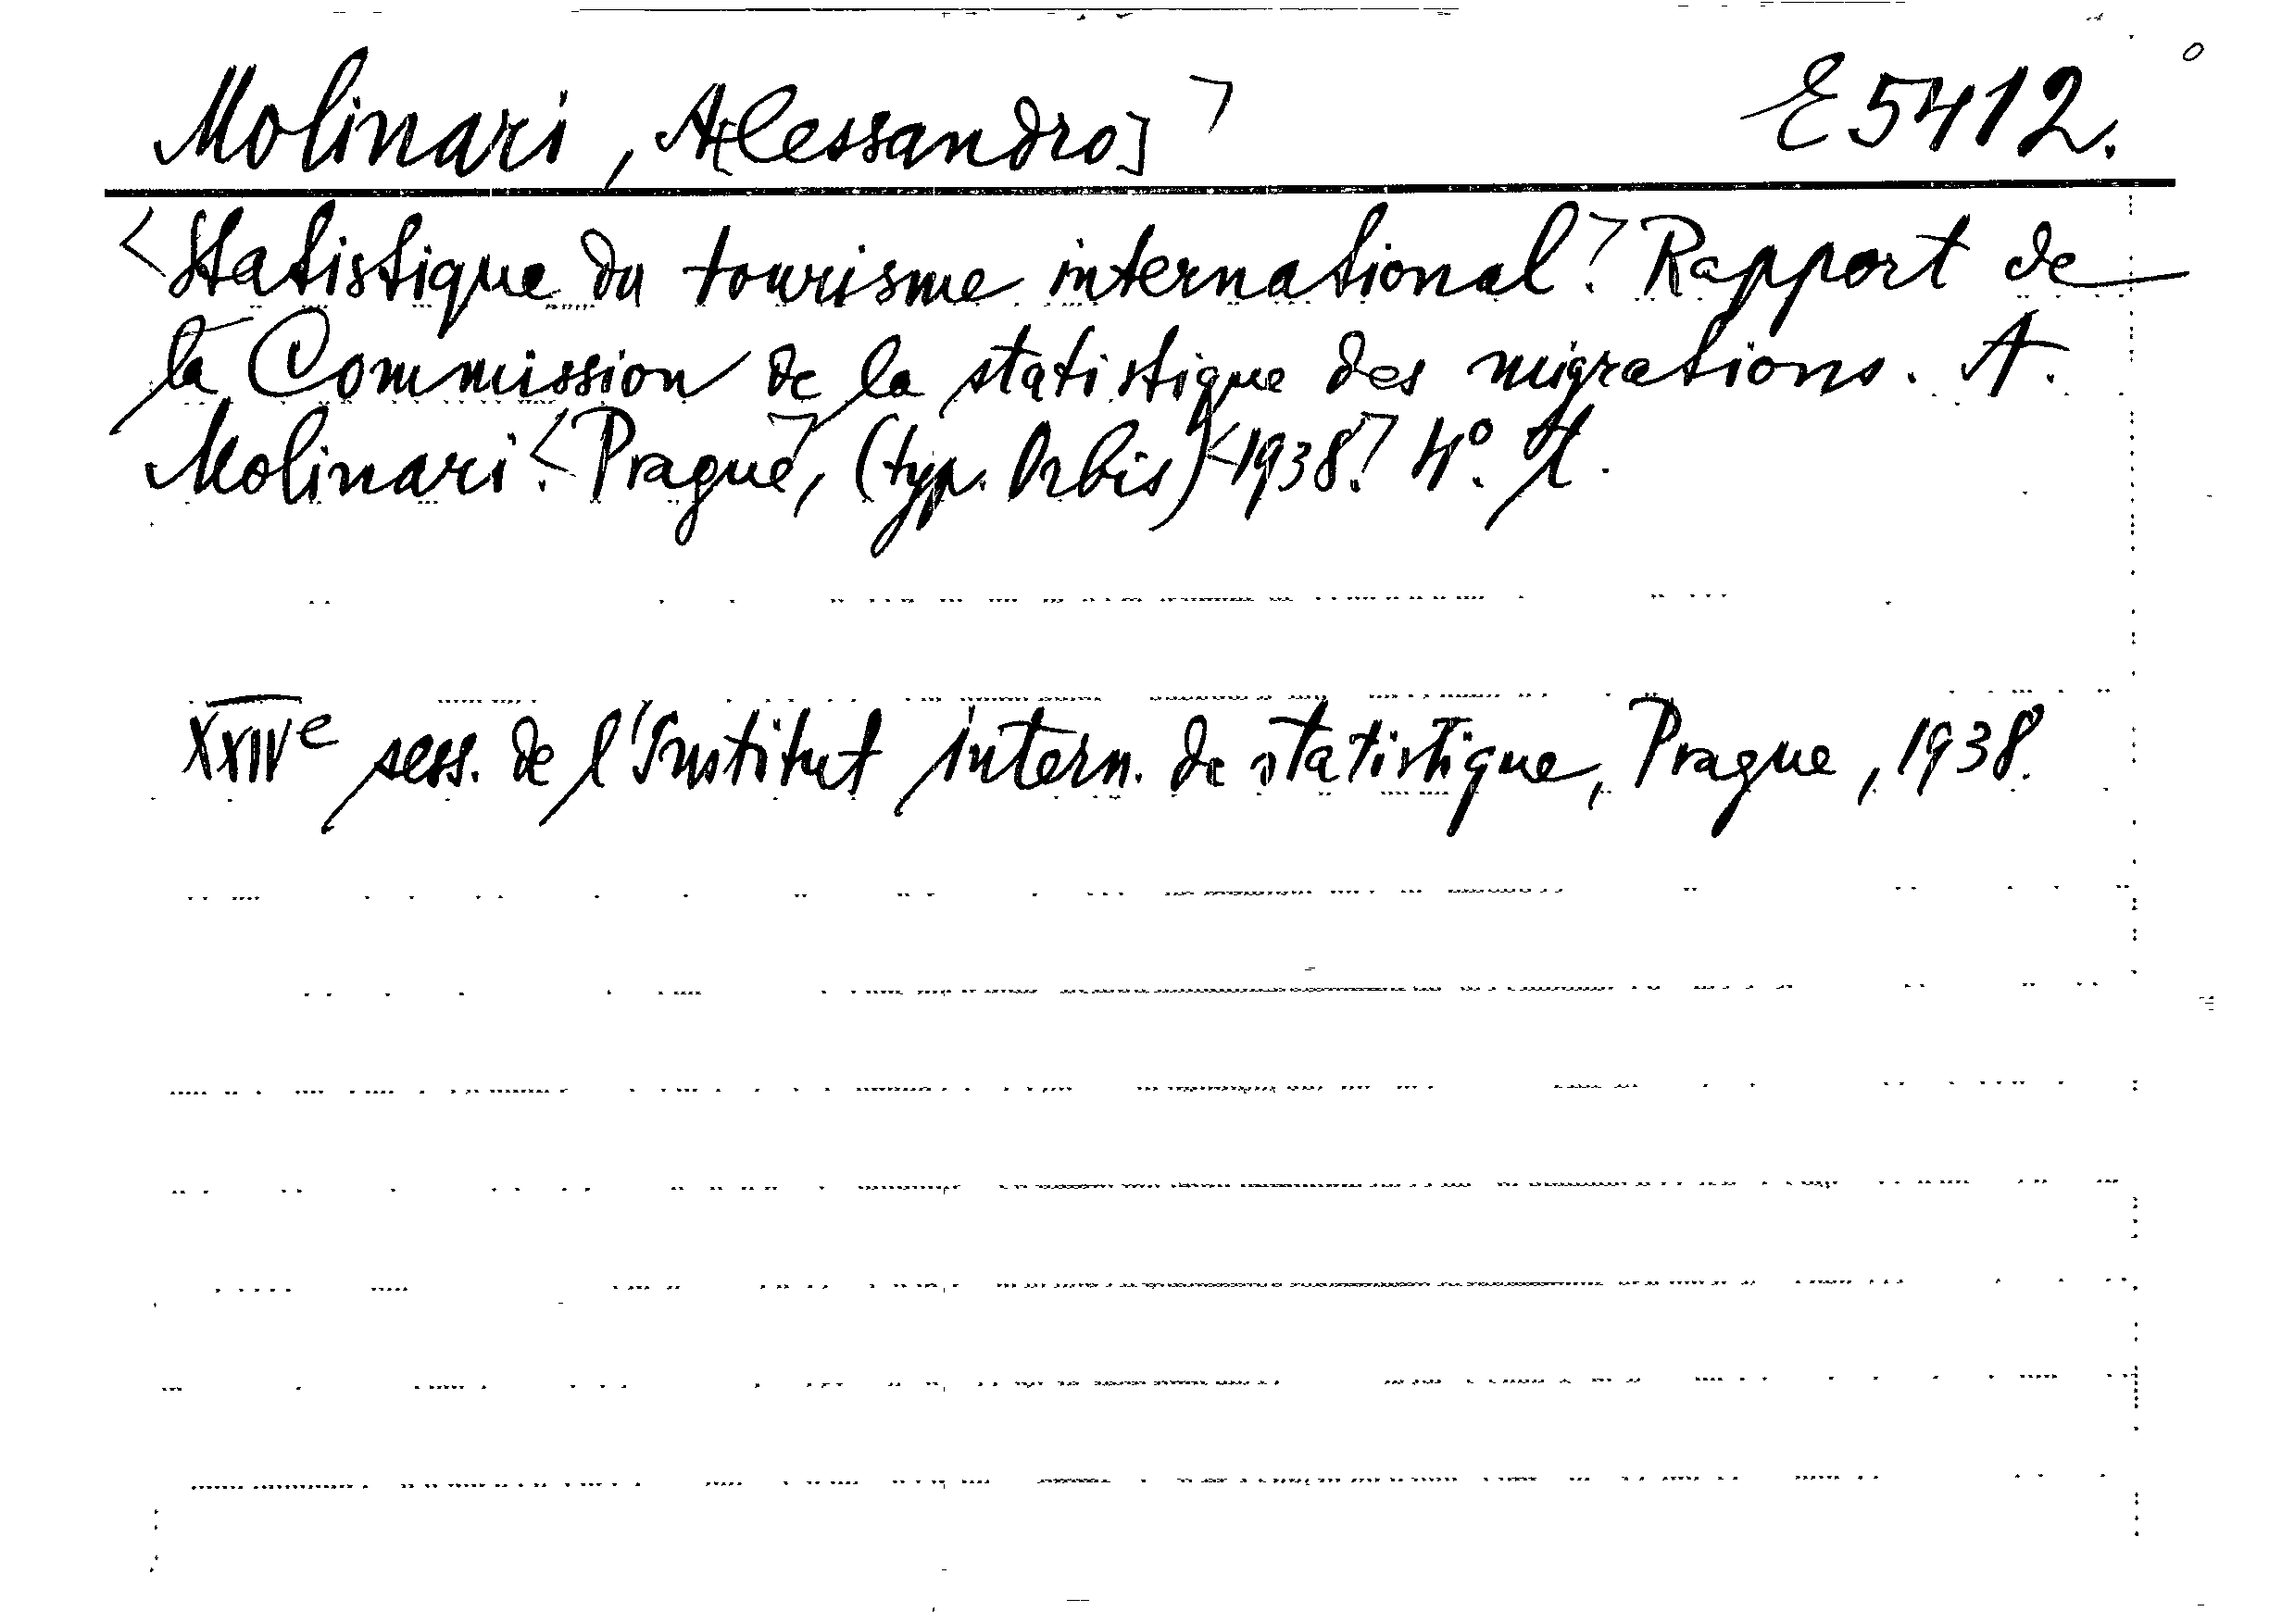 Molinari, A[lessandro]⌝ E 5412.
<Statistique du tourisme international⌝. Rapport de
la Commission de la statistique des migrations. A.
Molinari. <Prague⌝, (typ. Orbis) <1938⌝. 4°.
XXIVe sess. de l'Institut intern. de statistique, Prague, 1938.